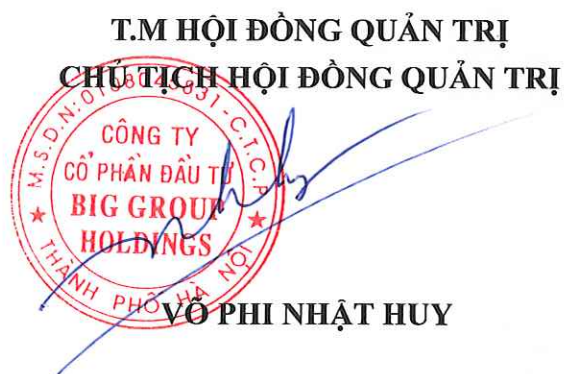 T.M HỘI ĐỒNG QUẢN TRỊ
CHỦ TỊCH HỘI ĐỒNG QUẢN TRỊ
CÔNG TY
CỔ PHẦN ĐẦU TƯ
BIG GROUP
HOLDINGS
THÀNH PHỐ HÀ NỘI
VÕ PHI NHẬT HUY